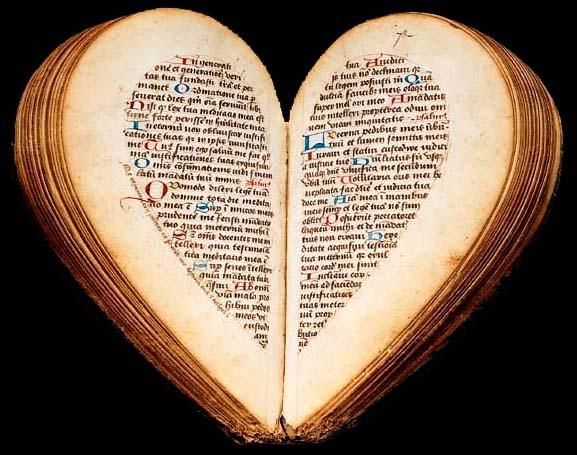 In generati
one et generatione veri
tas tua fundasti terrā et per
manet Ordinatione tua p
severat dies qm̄ oīa serviūt tibi
Nisi q lex tua meditatio mea est
tunc forte perissem in humilitate
In eternū non obliviscar iustifi
cationes tuas qr in ipsis vivificasti
me Tuus sum ego salvū me fac qm̄
iustificationes tuas exquisivi
Omis cōsūmationis vidi finem
latū mādatū tuū nimis
Quomodo dilexi legē tuā
domine tota die medita
tio mea ē Sup inimicos meos
prudentē me fecisti mādato
tuo quia in eternū michi
ē Sup om̄s docentes me in
tellexi quia testimōia
tua meditatio mea ē
Sup senes ītellexi
quia mādata tua
q̄sivi Ab om̄i
via mala pro
hibui pedes
meos vt
custodi
am
72
tua A iudici
js tuis nō declinavi qr
tu legem posuisti m̄ Quā
dulcia faucibz meis eloqa tua
super mel ori meo A mādatis
tuis intellexi propterea odivi om̄
nem viam iniquitatis
Lucerna pedibus meis verbū
tuū et lumen semitis meis
Iuravi et statui custodire iudici
a iusticie tue Humiliatus sū usq
quaq dn̄e vivifica me secundum
verbū tuū Voluntaria oris mei be
neplacita fac dn̄e et iudicia tua
doce me Aīa mea ī manibus
meis semp et legē tuā nō sum
oblitȝ Posuerūt peccatores
laqueū michi et de mādatis
tuis non erravi Here
ditate acquisivi testiōia
tua in eternū qr exul
tatio cord̄ mei sunt
Inclinavi cor
meū ad faciēdas
iustificationes
tuas in eter
nū prop
ter ret
butio
nē